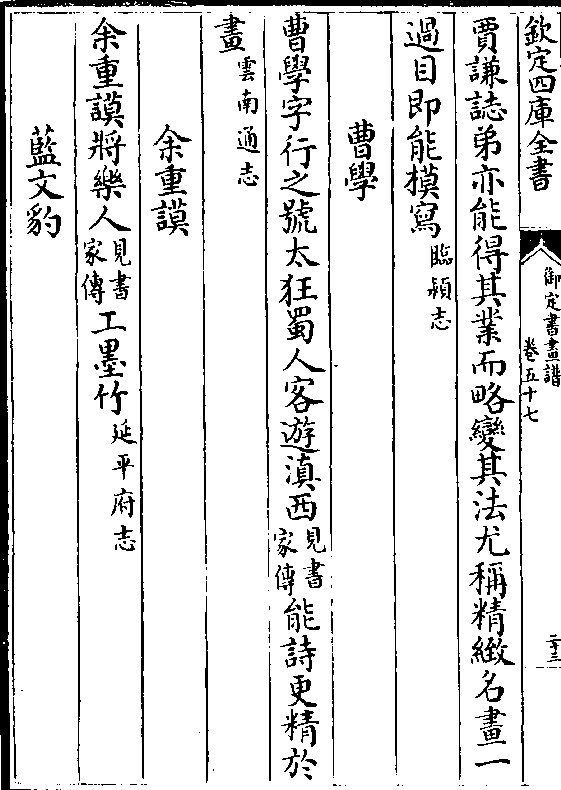 欽定四庫全書
御定書畫譜
卷五十七
二十三
賈謙誌弟亦能得其業而略變其法尤稱精緻名畫一
過目即能模寫臨潁志
曹學
曹學字行之號太狂蜀人客遊滇西見書家傳能詩更精於
畫雲南通志
余重謨
余重謨將樂人見書家傳工墨竹延平府志
藍文豹